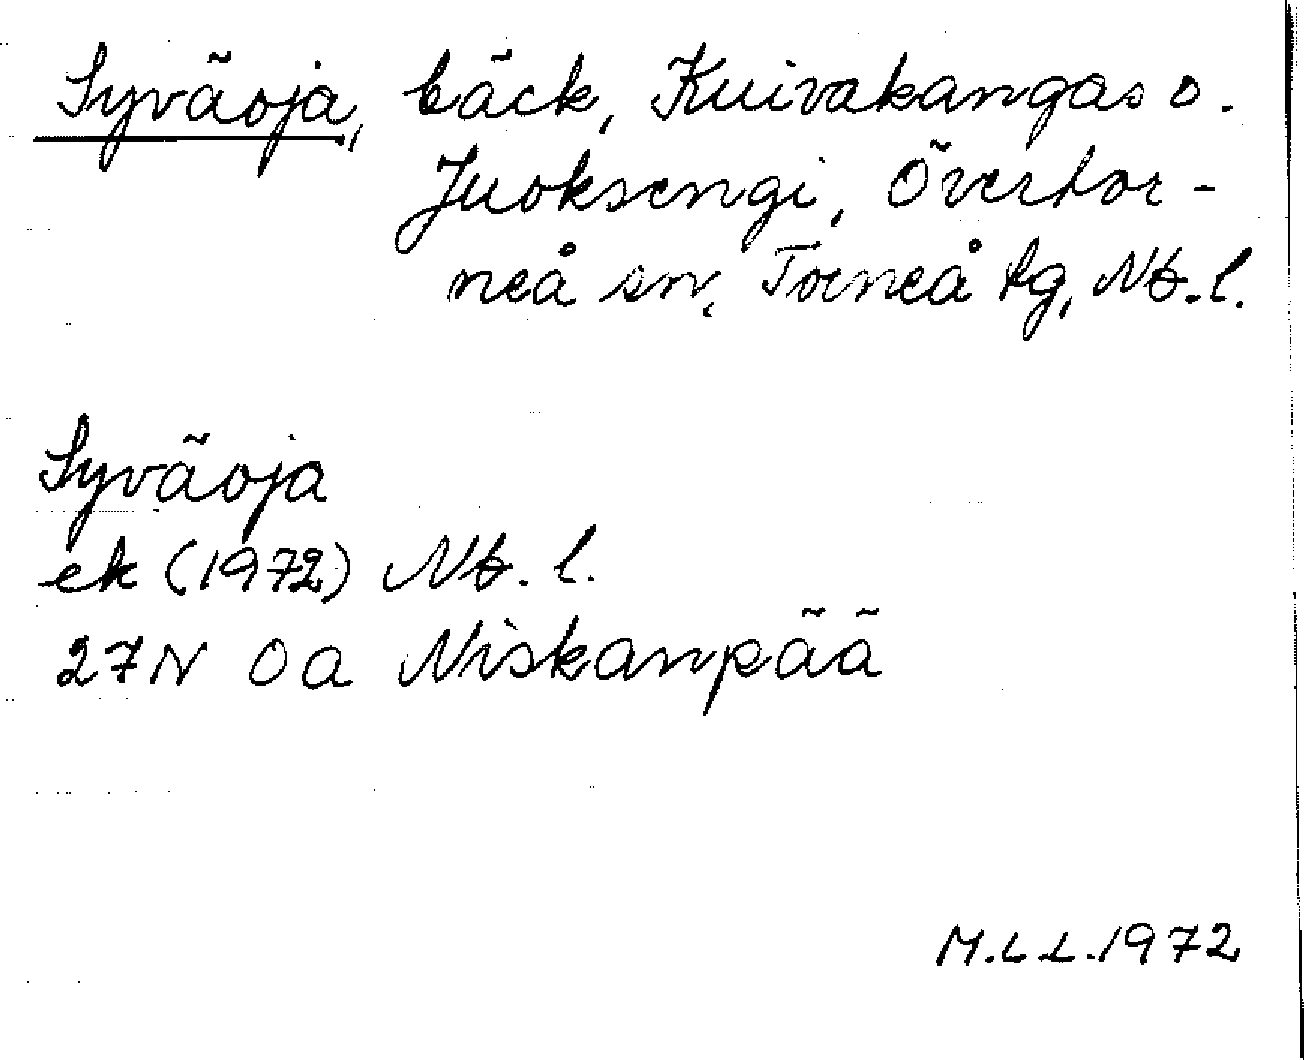 Syväoja, bäck, Kuivakangas o.
Juoksengi, Övertor-
neå sn, Torneå tg, Nb. l.
Syväoja
ek (1972) Nb. l.
27N 0a Niskanpää
M.L.L. 1972